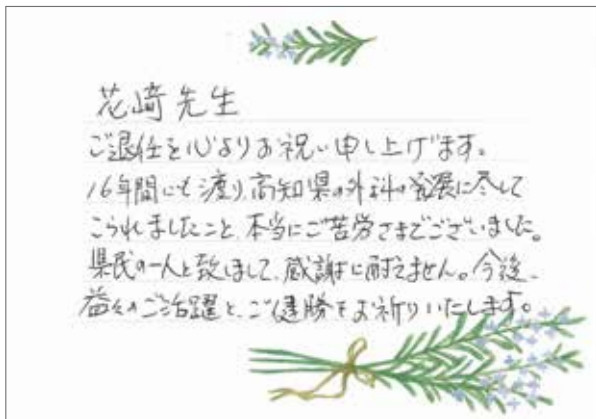 花﨑先生
ご退任を心よりお祝い申し上げます。
16年間にも渡り、高知県の外科の発展に尽して
こられましたこと、本当にご苦労さまでございました。
県民の一人と致しまして、感謝に耐えません。今後、
益々のご活躍と、ご健勝をお祈りいたします。